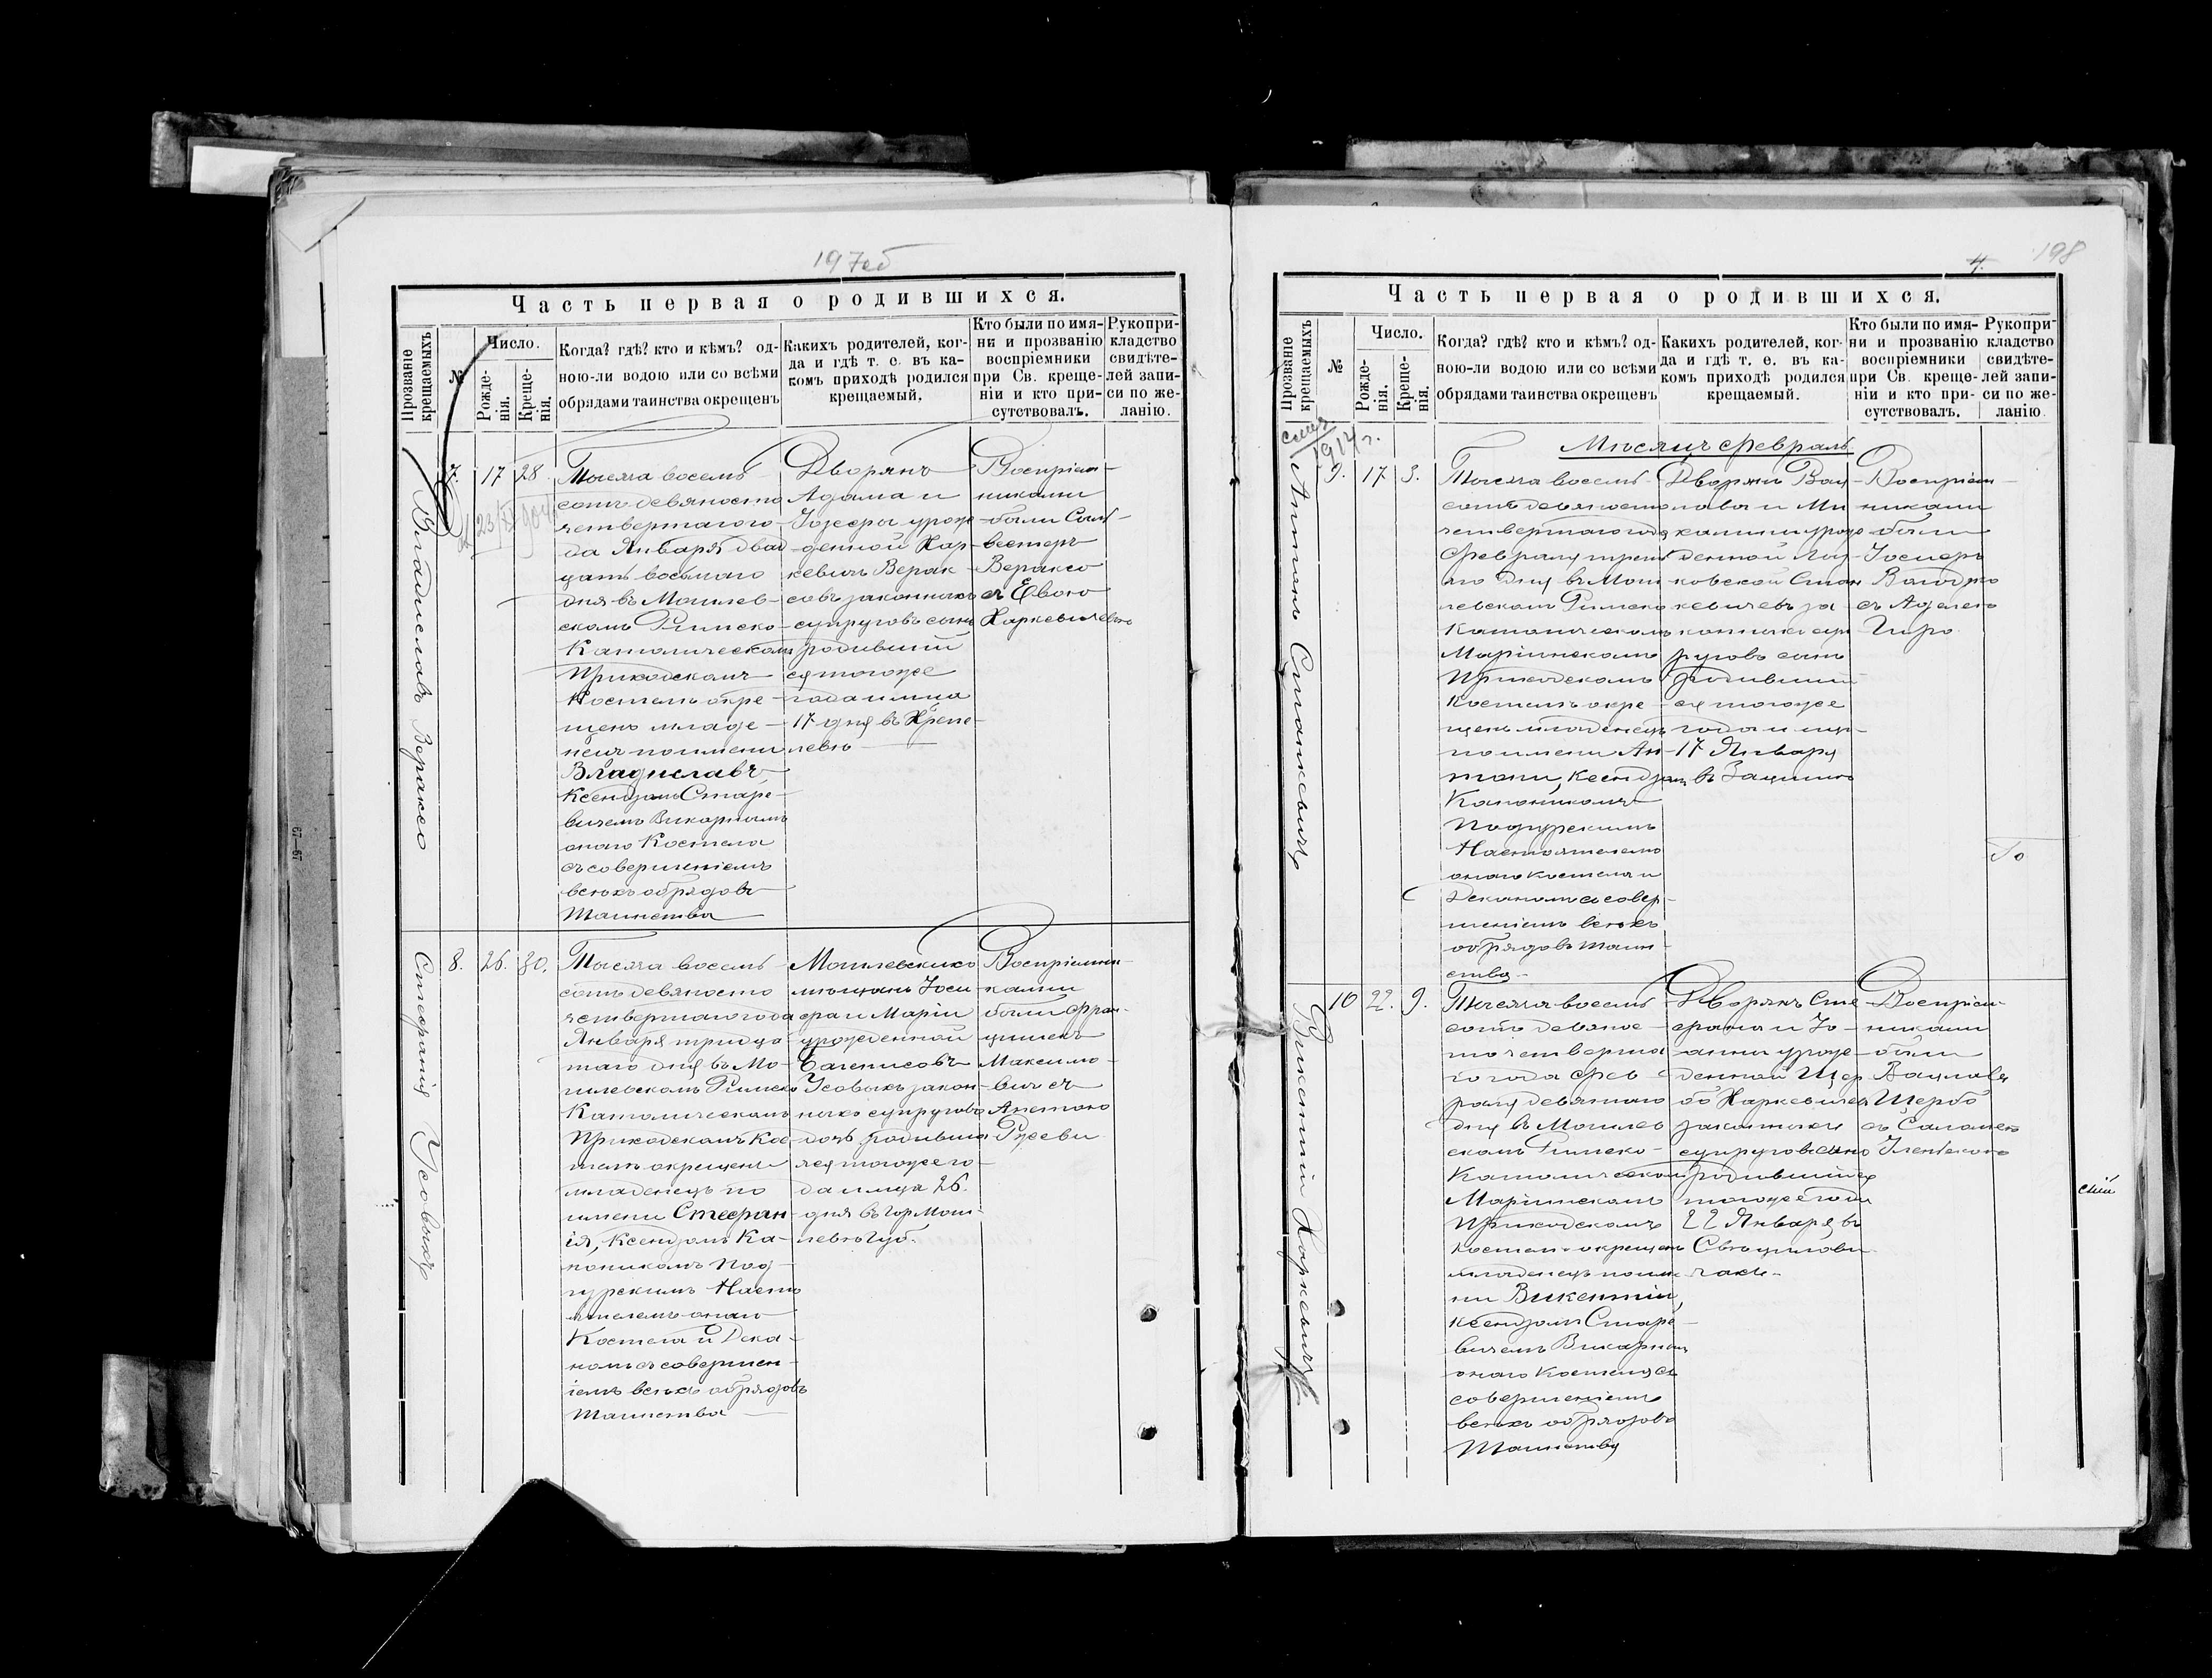 197об
Часть первая о родившихся.
Прозваніе крещаемыхъ
№
Число.
Рожде-
нія.
Креще-
нія.
Когда? гдѣ? кто и кѣмъ? од-
ною-ли водою или со всѣми
обрядами таинства окрещенъ
Какихъ родителей, ког-
да и гдѣ т. е. въ ка-
комъ приходѣ родился
крещаемый.
Кто были по имя-
ни и прозванію
воспріемники
при Св. креще-
ніи и кто при-
сутствовалъ.
Рукопри-
кладство
свидѣте-
лей запи-
си по же-
ланію.
Владиславъ Вераксо
7.
17
28.
Тысяча восемь-
сотъ девяносто
четвертаго го-
да Января двад-
цать восьмаго
дня въ Могилев-
скомъ Римско-
Католическомъ
Приходскомъ
Костелѣ окре-
щенъ младе-
нецъ по имени
Владиславъ,
Ксендзомъ Старе-
вичемъ Викарнымъ
онаго Костела
съ совершеніемъ
всѣхъ обрядовъ
Таинства
Дворянъ
Адама и
Іозефы урож-
денной Хар-
кевичъ Верак-
совъ законныхъ
супруговъ сынъ
родившій
ся тогоже
года и м-ца
17 дня въ
Воспріем-
никами
были Силь-
вестеръ
Вераксо
съ Евою
Харкевичевою
Стефанія Усовыхъ
8.
26.
30.
Тысяча восемь-
сотъ девяносто
четвертаго года
Января тридца-
таго дня въ Мо-
гилевскомъ Римско
Католическомъ
Приходскомъ Кос-
телѣ окрещенъ
младенецъ по
имени Стефан-
ія, Ксендзомъ Ка-
ноникомъ Под-
гурскимъ Насто
ятелемъ онаго
Костела и Дека-
номъ съ совершен-
іемъ всѣхъ обрядовъ
Таинства
Могилевскихъ
мѣщанъ Іоси-
фа и Маріи
урожденной
Усовыхъ закон-
ныхъ супруговъ
дочь родивша
яся тогоже го-
да и м-ца 26.
дня въ гор. Моги-
левѣ губ.
Воспріемни-
ками
были Фран-
цишекъ
Максимо-
вичъ съ
Анетою
198
4.
Часть первая о родившихся.
Прозваніе крещаемыхъ
№
Число.
Рожде-
нія.
Креще-
нія.
Когда? гдѣ? кто и кѣмъ? од-
ною-ли водою или со всѣми
обрядами таинства окрещенъ
Какихъ родителей, ког-
да и гдѣ т. е. въ ка-
комъ приходѣ родился
крещаемый.
Кто были по имя-
ни и прозванію
воспріемники
при Св. креще-
ніи и кто при-
сутствовалъ.
Рукопри-
кладство
свидѣте-
лей запи-
си по же-
ланію.
1914 г.
Мѣсяцъ Февраль
Антонъ Станкевичъ
9.
17
3.
Тысяча восемь-
сотъ девяносто
четвертаго года
Февраля треть
яго дня въ Моги
левскомъ Римско
Католическомъ
Маріинскомъ
Приходскомъ
Костелѣ окре-
щенъ младенецъ
по имени Ан-
тонъ, Ксендзомъ
Каноникомъ
Подгурскимъ
Настоятелемъ
онаго костела и
Деканомъ съ совер-
шеніемъ всѣхъ
обрядовъ Таин-
ства
Дворянъ Вац-
лава и Ми
халины урож
денной
Стан
кевичевъ за
конныхъ суп
руговъ сынъ
родившій
ся тогоже
года и м-ца
17 Января
въ
Воспріем-
никами
были
Іосифъ
съ Аделею
Гиро
Викентій Харкевичъ
10
22.
9.
Тысяча восемь-
сотъ девянос-
то четверта
го года Фев-
раля девятаго
дня въ Могилев
скомъ Римско-
Католическомъ
Маріинскомъ
Приходскомъ
костелѣ окрещенъ
младенецъ по име
ни Викентій,
Ксендзомъ Старе-
вичемъ Викарнымъ
онаго Костела съ
совершеніемъ
всѣхъ обрядовъ
Таинства
Дворянъ Сте
фана и Іо-
анны урож-
денной Щер
бо Харкевичей
законныхъ
супруговъ сынъ
родившійся
тогоже года
22 Января, въ
Воспріем-
никами
были
Вацлавъ
Щербо
съ